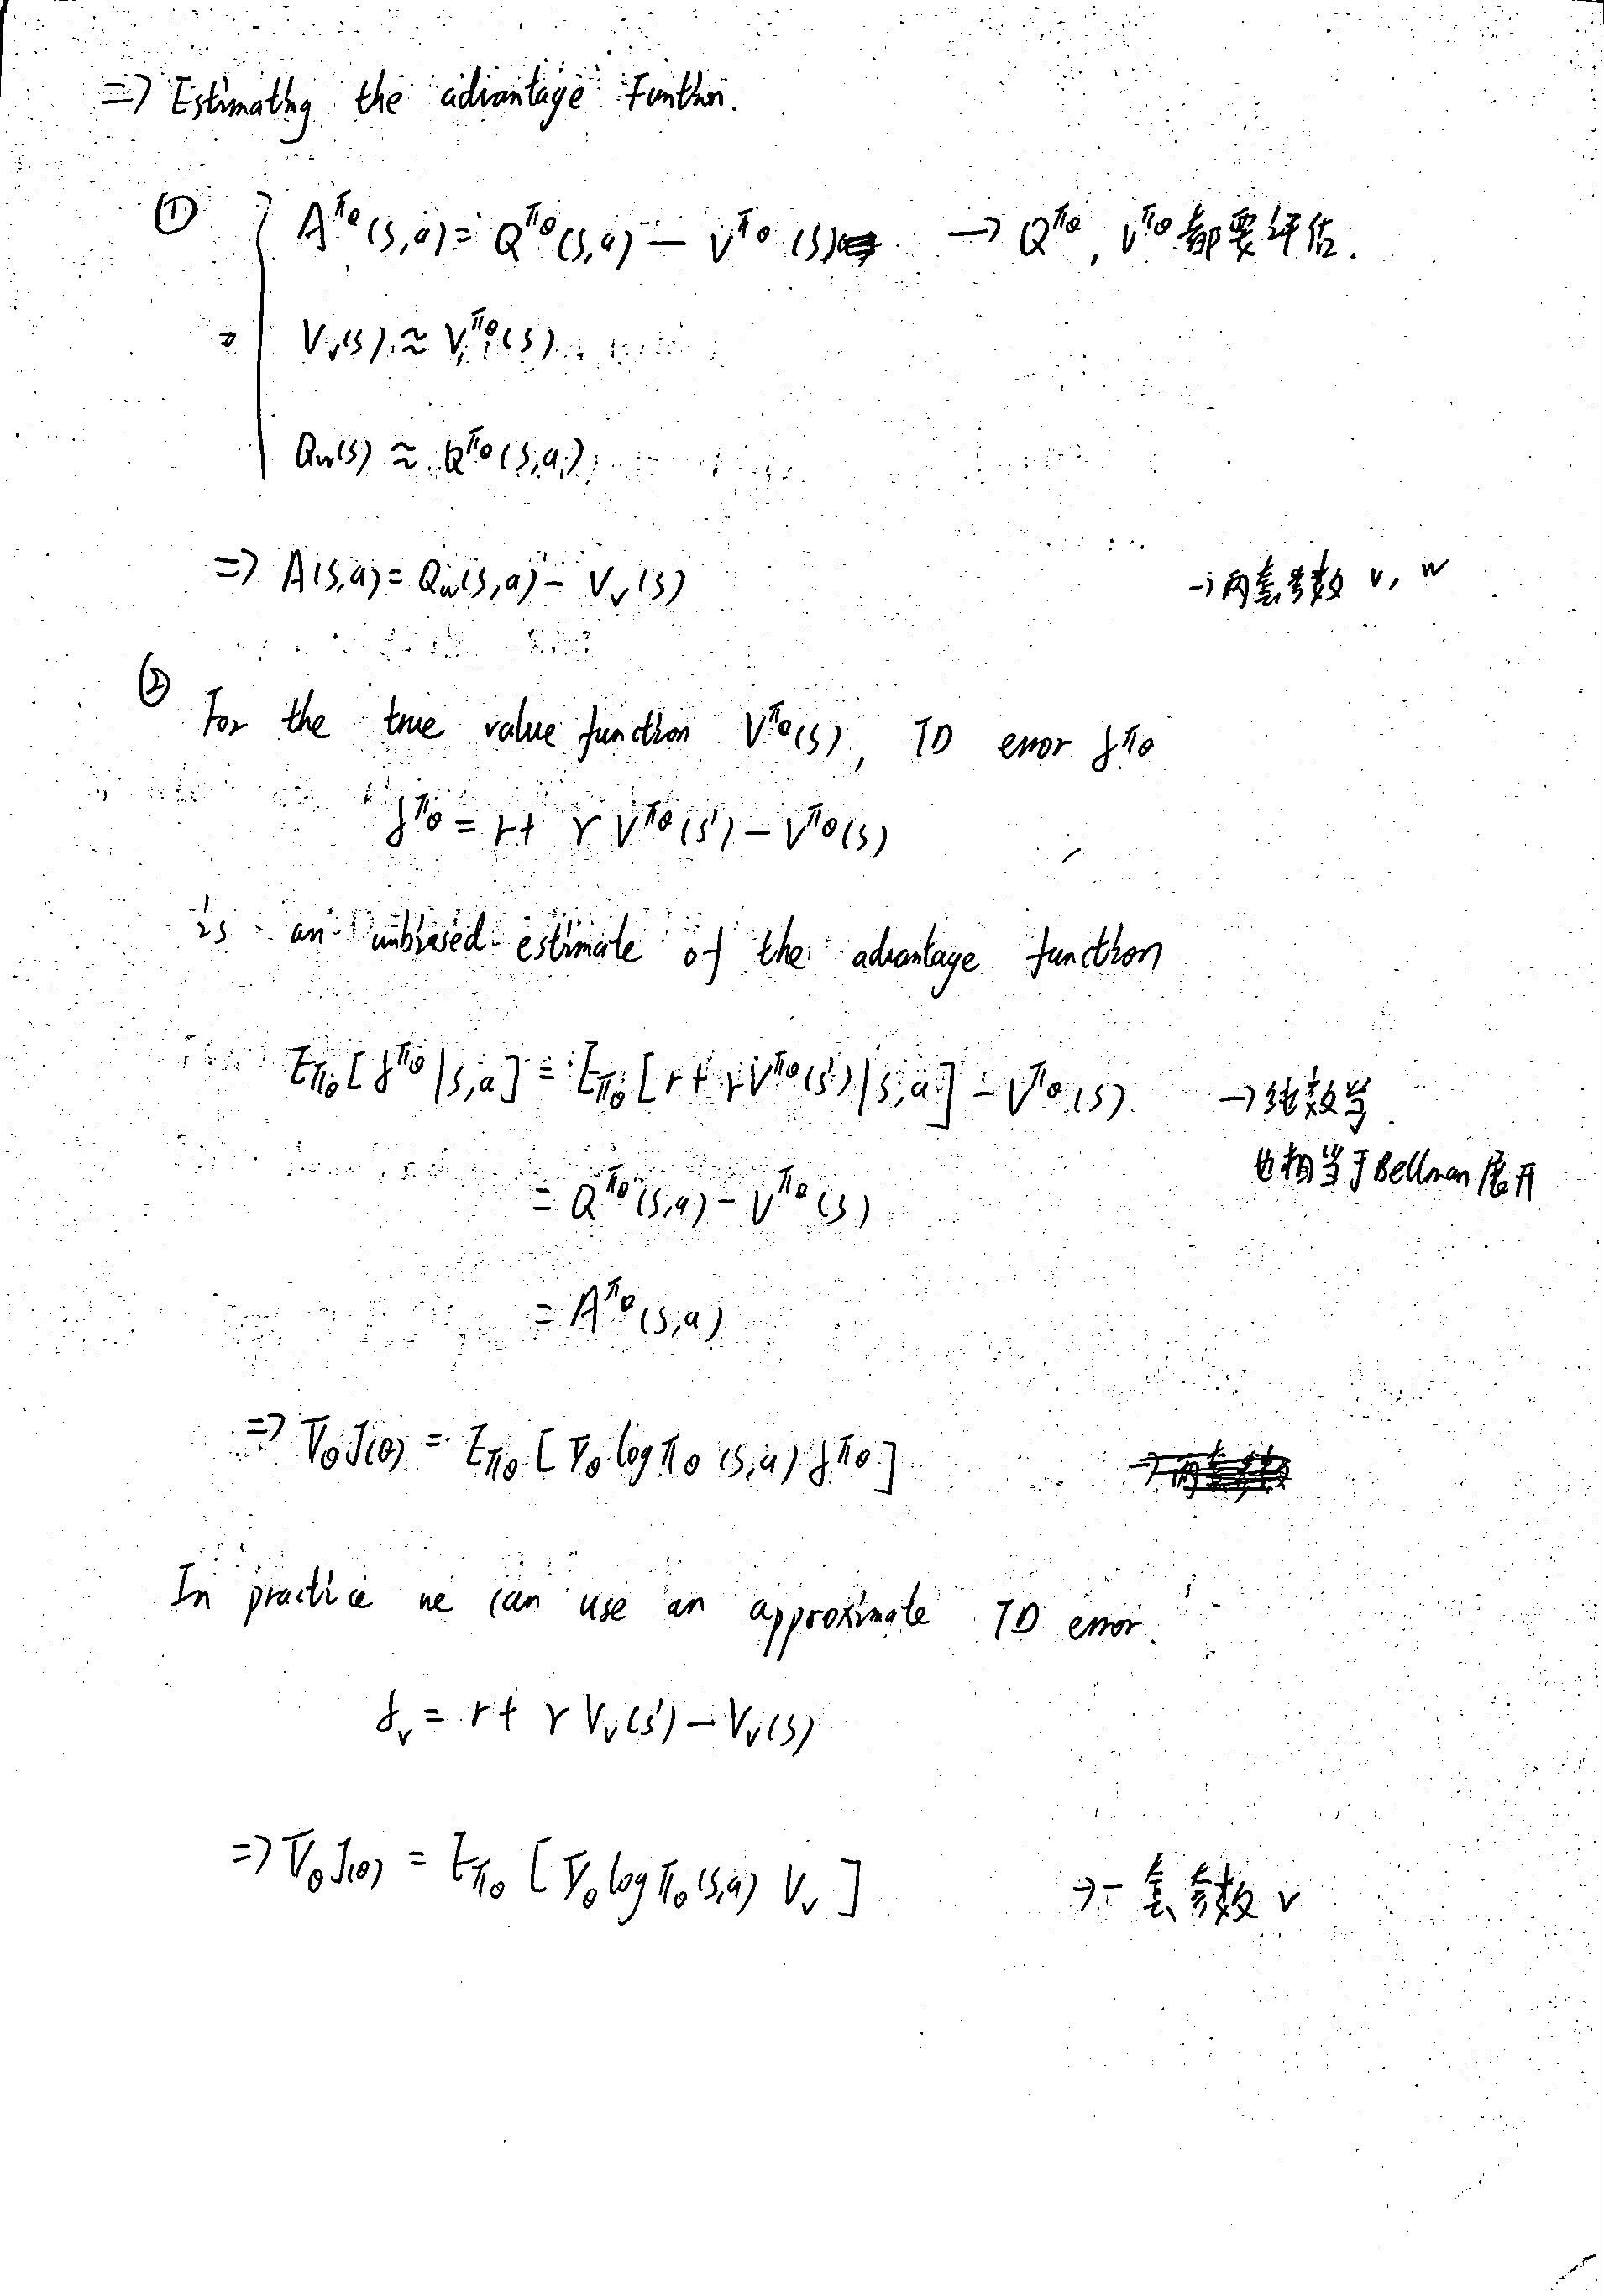 => Estimating the advantage Function.
① A^πθ(s,a) = Q^πθ(s,a) − V^πθ(s) → Q^πθ, V^πθ 都要评估.
V_v(s) ≈ V^πθ(s)
Q_w(s) ≈ Q^πθ(s,a)
=> A(s,a) = Q_w(s,a) − V_v(s) → 两套参数 v, w
② For the true value function V^πθ(s), TD error δ^πθ
δ^πθ = r + γ V^πθ(s') − V^πθ(s)
is an unbiased estimate of the advantage function
E_πθ[δ^πθ | s,a] = E_πθ[r + γV^πθ(s') | s,a] − V^πθ(s) → 纯数学.
也相当于Bellman展开
= Q^πθ(s,a) − V^πθ(s)
= A^πθ(s,a)
=> ∇_θ J(θ) = E_πθ[∇_θ log π_θ(s,a) δ^πθ]
In practice we can use an approximate TD error.
δ_v = r + γ V_v(s') − V_v(s)
=> ∇_θ J(θ) = E_πθ[∇_θ log π_θ(s,a) V_v] → 一套参数 v